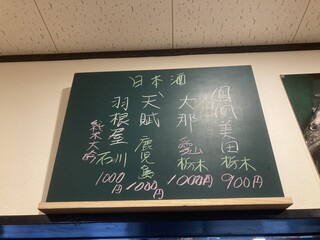 日本酒
鳳凰美田
栃木
900円
大那
愛
栃木
1000円
天賦
鹿児島
1000円
羽根屋
純米大吟
石川
1000円